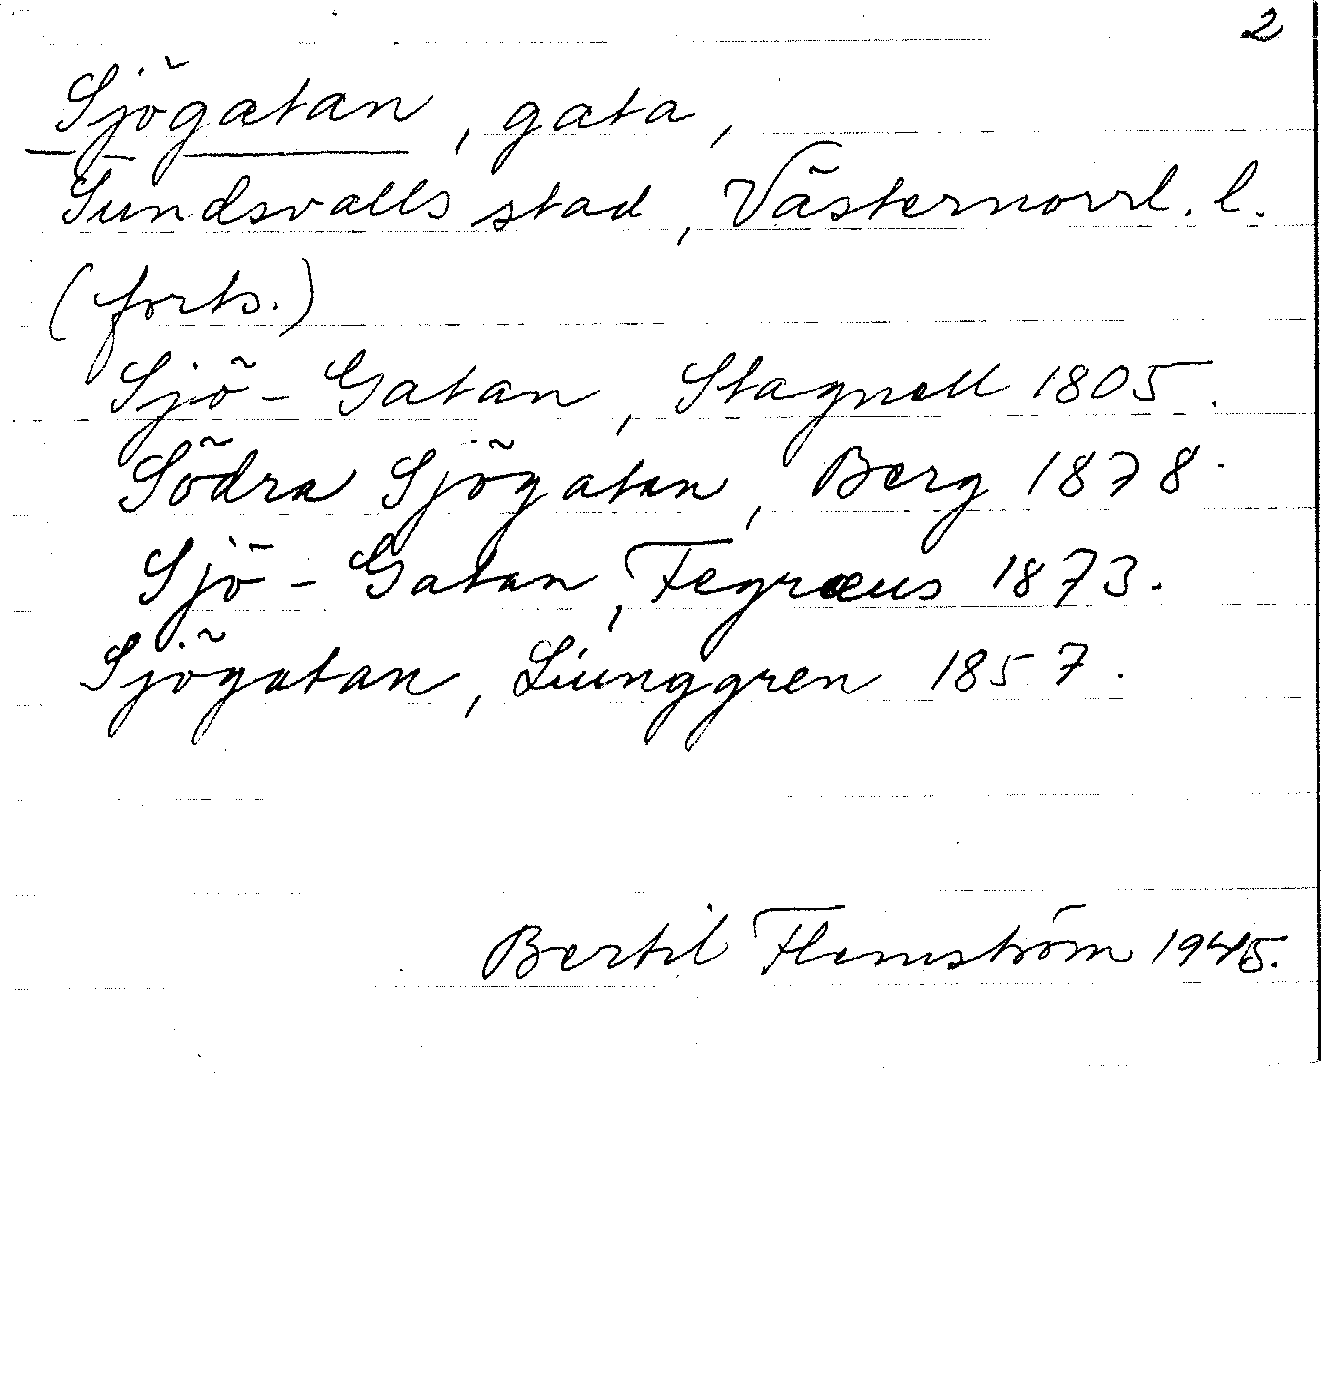 2
Sjögatan, gata,
Sundsvalls stad, Västernorrl. l.
(forts.)
Sjö-Gatan, Stagnell 1805.
Södra Sjögatan, Berg 1878.
Sjö-Gatan, Fegræus 1873.
Sjögatan, Liunggren 1857.
Bertil Flemström 1945.